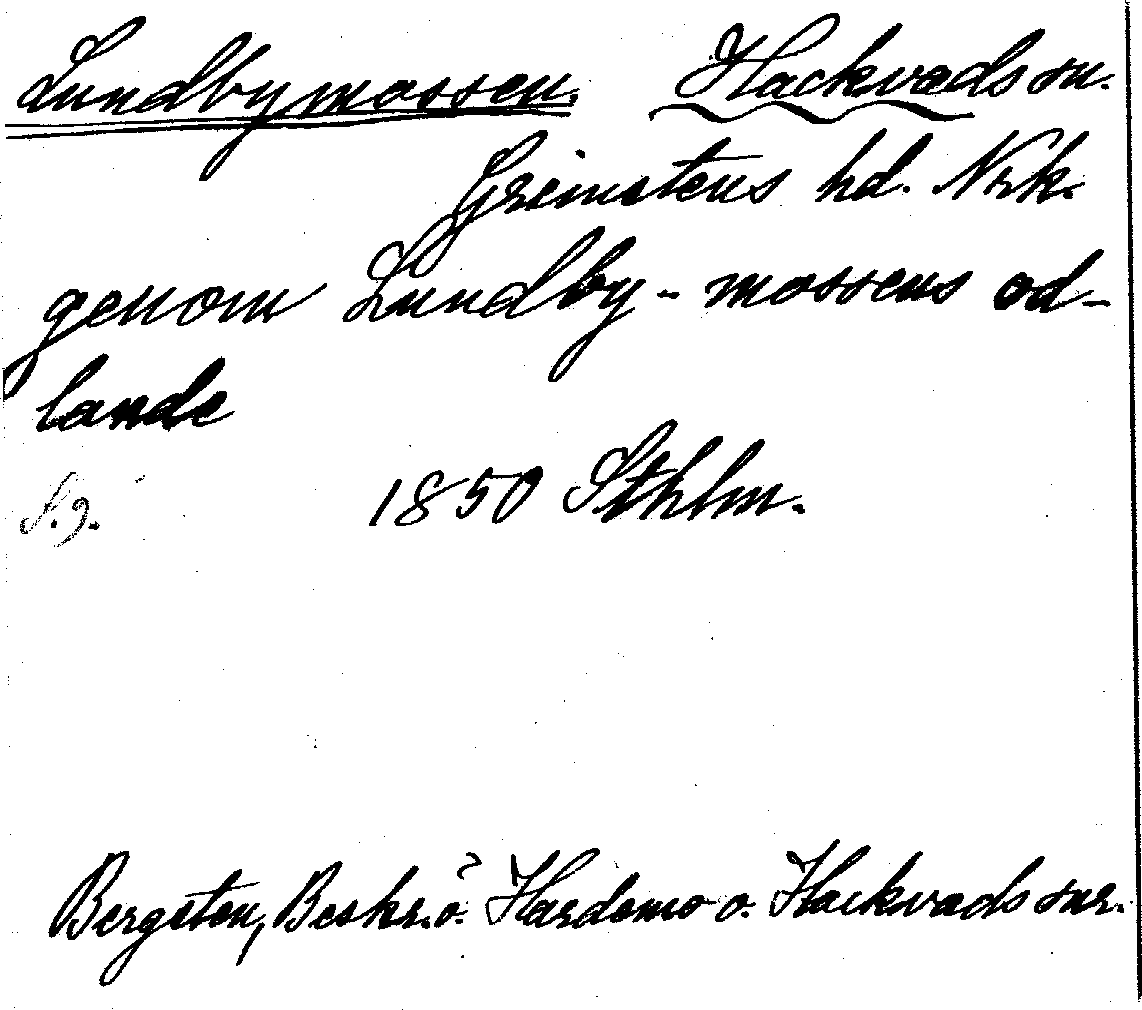 Lundbymossen. Hackvads sn.
Grimstens hd. Nrk.
genom Lundby-mossens od-
lande
S. 9. 1850 Sthlm.
Bergsten, Beskr. ö. Hardemo o. Hackvads snr.